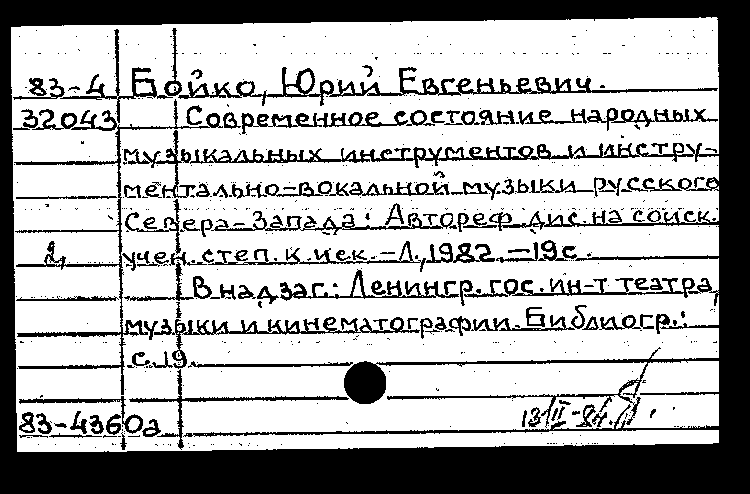 83-4 Бойко, Юрий Евгеньевич.
32043 Современное состояние народных
музыкальных инструментов и инстру-
ментально-вокальной музыки русского
Севера-Запада: Автореф. дис. на соиск.
2, учен. степ. к. иск. -Л., 1982. -19с.
В надзаг.: Ленингр. гос. ин-т театра,
музыки и кинематографии. Библиогр.:
с. 19.
83-4360а 13/II-84.